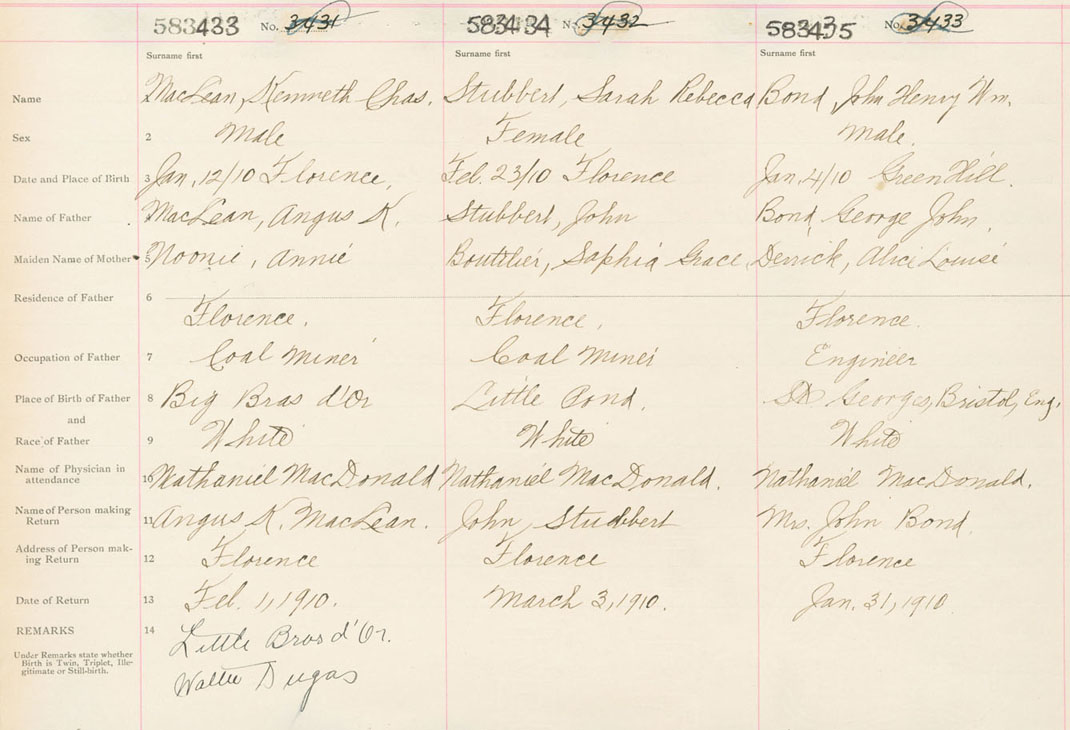 583433 No. 3431 583434 No. 3432 583435 No. 3433
Surname first Surname first Surname first
Name MacLean, Kenneth Chas. Stubbert, Sarah Rebecca Bond, John Henry Wm.
Sex 2 Male Female Male.
Date and Place of Birth 3 Jan, 12/10 Florence, Feb. 23/10 Florence Jan, 4/10 Green Hill.
Name of Father MacLean, Angus K. Stubbert, John Bond, George John,
Maiden Name of Mother 5 Noonie, Annie Boutilier, Sophia Grace, Derrick, Alice Louise
Residence of Father 6
Florence. Florence, Florence.
Occupation of Father 7 Coal Miner Coal Miner Engineer
Place of Birth of Father 8 Big Bras d'Or Little Pond. St Georges, Bristol, Eng.
and
Race of Father 9 White White White
Name of Physician in
attendance 10 Nathaniel MacDonald Nathaniel MacDonald. Nathaniel MacDonald.
Name of Person making
Return 11 Angus K. MacLean. John, Studbbert Mrs. John Bond.
Address of Person mak-
ing Return 12 Florence Florence Florence
Date of Return 13 Feb. 1, 1910. March 3, 1910. Jan. 31, 1910
REMARKS 14 Little Bras d'Or.
Under Remarks state whether
Birth is Twin, Triplet, Ille-
gitimate or Still-birth.
Walter Dugas